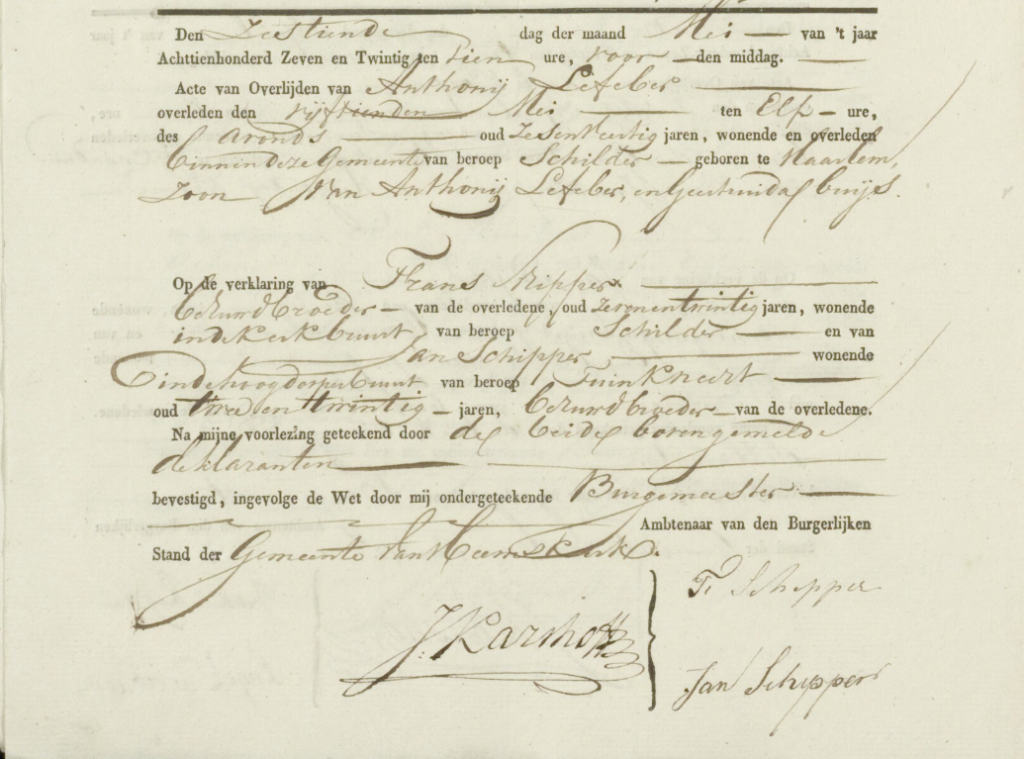 Den Zestiende dag der maand Mei van 't jaar
Achttienhonderd Zeven en Twintig ten tien ure, voor den middag.
Acte van Overlijden van Anthonij Lefeber
overleden den vijftienden Mei ten Elf ure,
des avonds oud Zesenveertig jaren, wonende en overleden
binnen deze Gemeente van beroep Schilder geboren te Haarlem,
Zoon Van Anthonij Lefeber, en Geertruida buijs.
Op de verklaring van Frans Schipper
behuwdbroeder van de overledene, oud zevenentwintig jaren, wonende
in de kerkbuurt van beroep Schilder en van
Jan Schipper wonende
in de hoogdorperbuurt van beroep Tuinknecht
oud twee en twintig jaren, behuwdbroeder van de overledene.
Na mijne voorlezing geteekend door de beide bovengemelde
deklaranten
bevestigd, ingevolge de Wet door mij ondergeteekende Burgemeester
Ambtenaar van den Burgerlijken
Stand der Gemeente Van Heemskerk.
F. Schipper
Jan Schipper